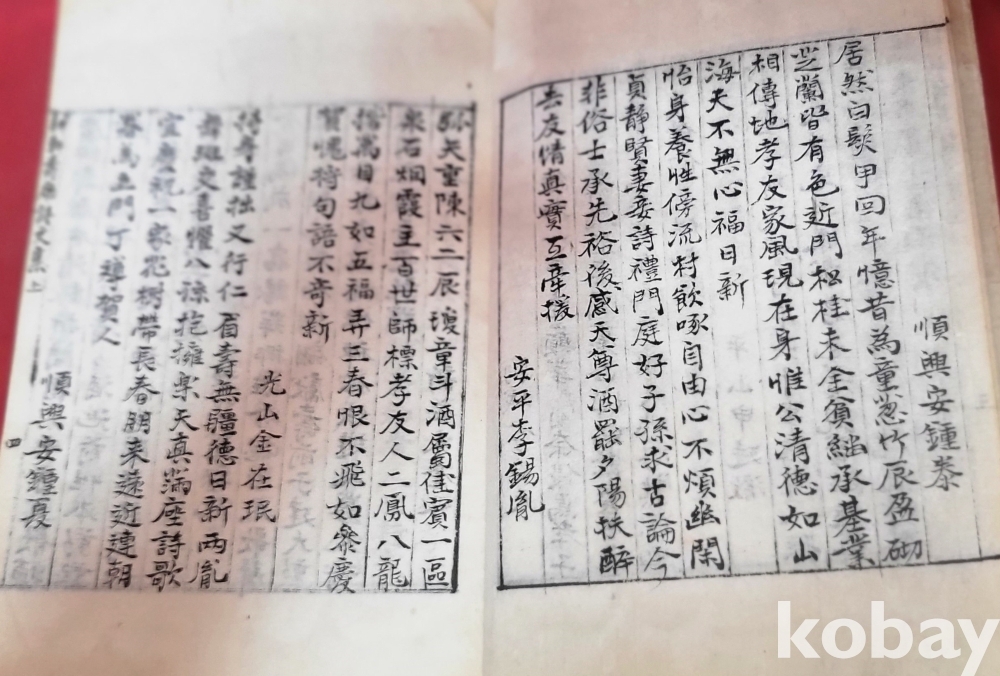 順興安鍾泰
居然白髮甲回年憶昔為童葱竹辰盈砌
芝蘭皆有色近門松桂未全貧継承基業
相傳地孝友家風現在身惟公清德如山
海天不無心福日新
怡身養性傍流村飲啄自由心不煩幽閑
貞静賢妻妾詩禮門庭好子孫求古論今
非俗士承先裕後感天尊酒罷夕陽扶醉
去友情真實互牽援
安平李錫胤
弥天重陳六二辰瓊章斗酒屬佳賓一區
泉石烟霞主百世師標孝友人二鳳八龍
萬目九如五福弄三春恨不飛如參慶
賀愧將句語不奇新
光山金在珉
持身謹拙又行仁眉壽無疆德日新兩胤
喜懼八抱擁樂天真滿座詩歌
一家花樹帶長春朋来遠近連朝
馬土門丁導賀人
順興安鍾夏
上
四
kobay